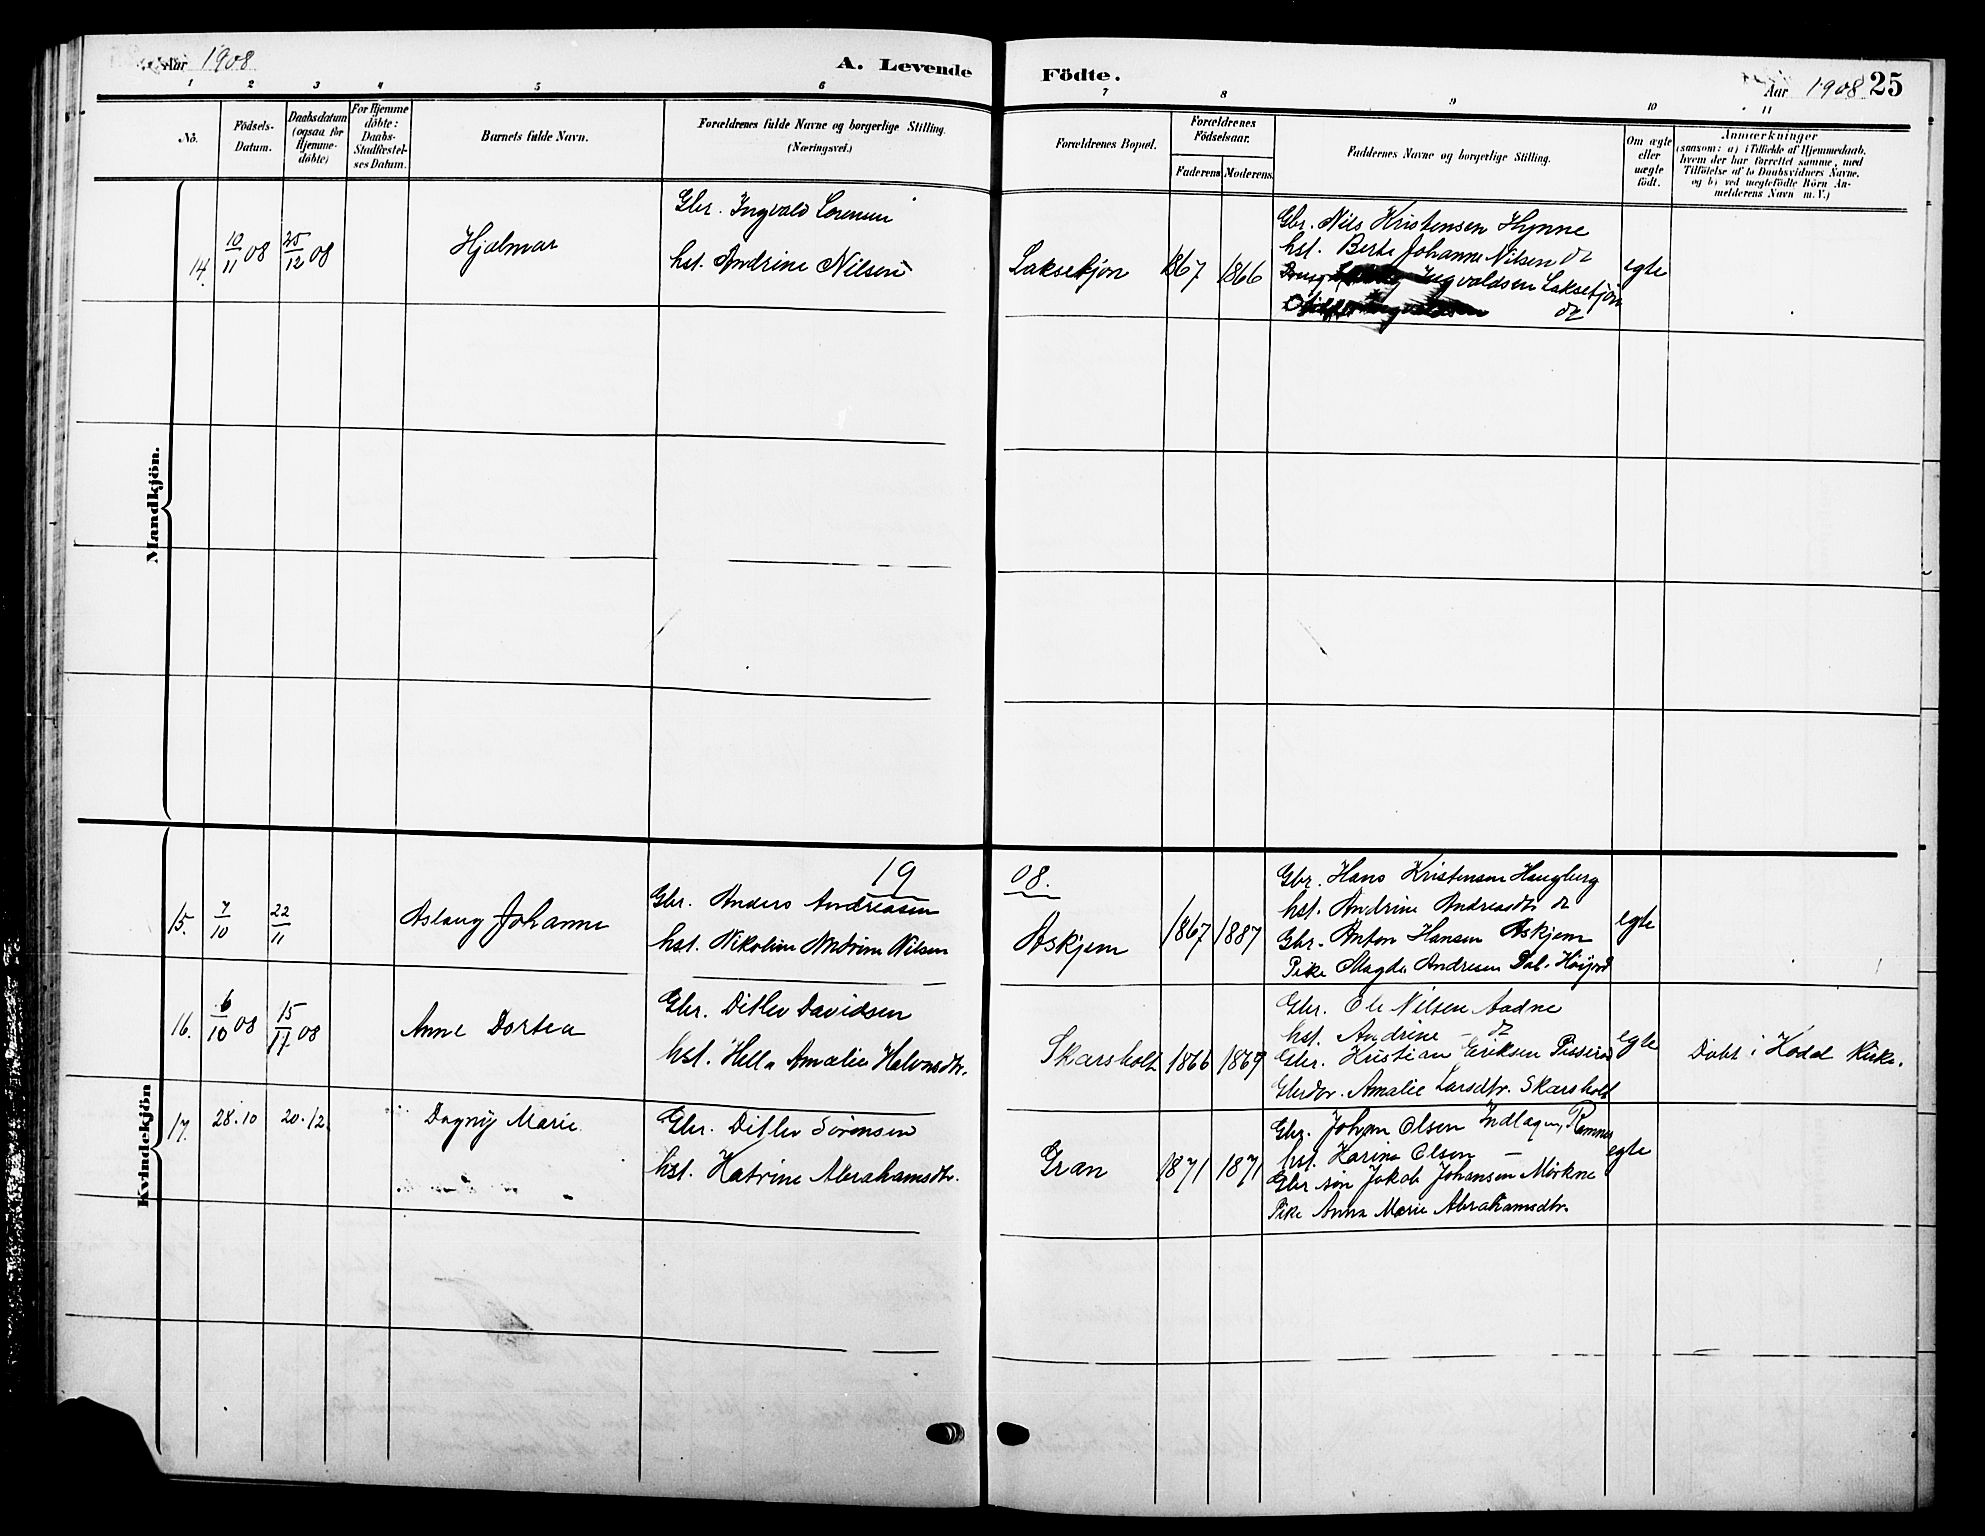 Aar 1908
A. Levende
Födte.
Aar 1908 25
1 2 3 4 5 6 7 8 9 10 11
Nö.
Födsels-
Datum.
Daabsdatum
(ogsaa for
Hjemme-
döbte)
For Hjemme
döbte:
Daabs-
Stadfæstel-
ses Datum.
Barnets fulde Navn.
Forældrenes fulde Navne og borgerlige Stilling.
(Næringsvei.)
Forældrenes Bopæl.
Forældrenes
Födselsaar.
Faderens Moderens
Faddernes Navne og borgerlige Stilling.
Om ægte
eller
uægte
födt.
Anmærkninger
(saasom: a) i Tilfælde af Hjemmedaab,
hvem der har forrettet samme, med
Tilföielse af to Daabsvidners Navne,
og b) ved uægtefödte Börn An-
melderens Navn m.V.)
Mandkjön.
14. 10/11 08 25/12 08
Hjalmar
Gbr. Ingvald Lorensen
hst. Andrine Nilsen
Laksekjøn 1867 1866
Gbr. Nils Kristensen Hynne
hst. Berte Johanne Nilsen do
Ingvaldsen Laksekjøn
do
egte
Kvindekjön
19 08.
15. 7/10 22/11
Aslaug Johanne
Gbr. Anders Andreassen
hst. Nikoline Andrine Nilsen
Askjem 1867 1887
Gbr. Hans Kristensen Haugberg
hst. Andrine Andreasdtr do
Gbr. Anton Hansen Askjem
Pike Magda Andresen Dal. Höijord
egte
16. 6/10 08 15/11 08
Anne Dortea
Gbr. Ditlev Davidsen
hst. Hella Amalie Halvorsdtr.
Skarsholt 1866 1869
Gbr. Ole Nilsen Aadne
hst. Andrine – do
Gbr. Kristian Eriksen Pisserød
Gbrdtr. Amalie Larsdtr. Skarsholt
egte
Døbt i Hodal Kirke.
17. 28.10 20.12
Dagny Marie
Gbr. Ditlev Sörensen
hst. Katrine Abrahamsdtr.
Gran 1871 1871
Gbr. Johan Olsen Indlagen, Ramnes
hst. Karine Olsen –
Gbr sön Jakob Johansen Mörkne
Pike Anna Marie Abrahamsdtr.
egte